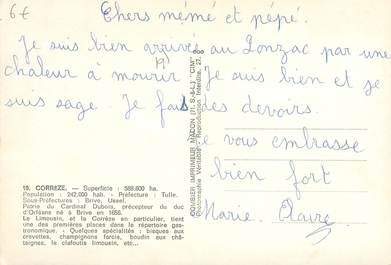 6€
Chers mémé et pépé.
Je suis bien arrivée au Lonzac par une
chaleur à mourir. Je suis bien et je
suis sage. Je fais des devoirs.
Je vous embrasse
bien fort
Marie. Claire.
19. CORREZE. — Superficie : 588.800 ha.
Population : 242.000 hab. - Préfecture : Tulle.
Sous-Préfectures : Brive, Ussel.
Patrie du Cardinal Dubois, précepteur du duc
d'Orléans né à Brive en 1656.
Le Limousin, et la Corrèze en particulier, tient
une des premières places dans le répertoire gas-
tronomique. - Quelques spécialités : bisques aux
crevettes, champignons farcis, boudin aux châ-
taignes, le clafoutis limousin, etc...
COMBIER IMPRIMEUR MACON (71. S.-&-L.) "CIM"
Photographie Véritable - Reproduction Interdite.